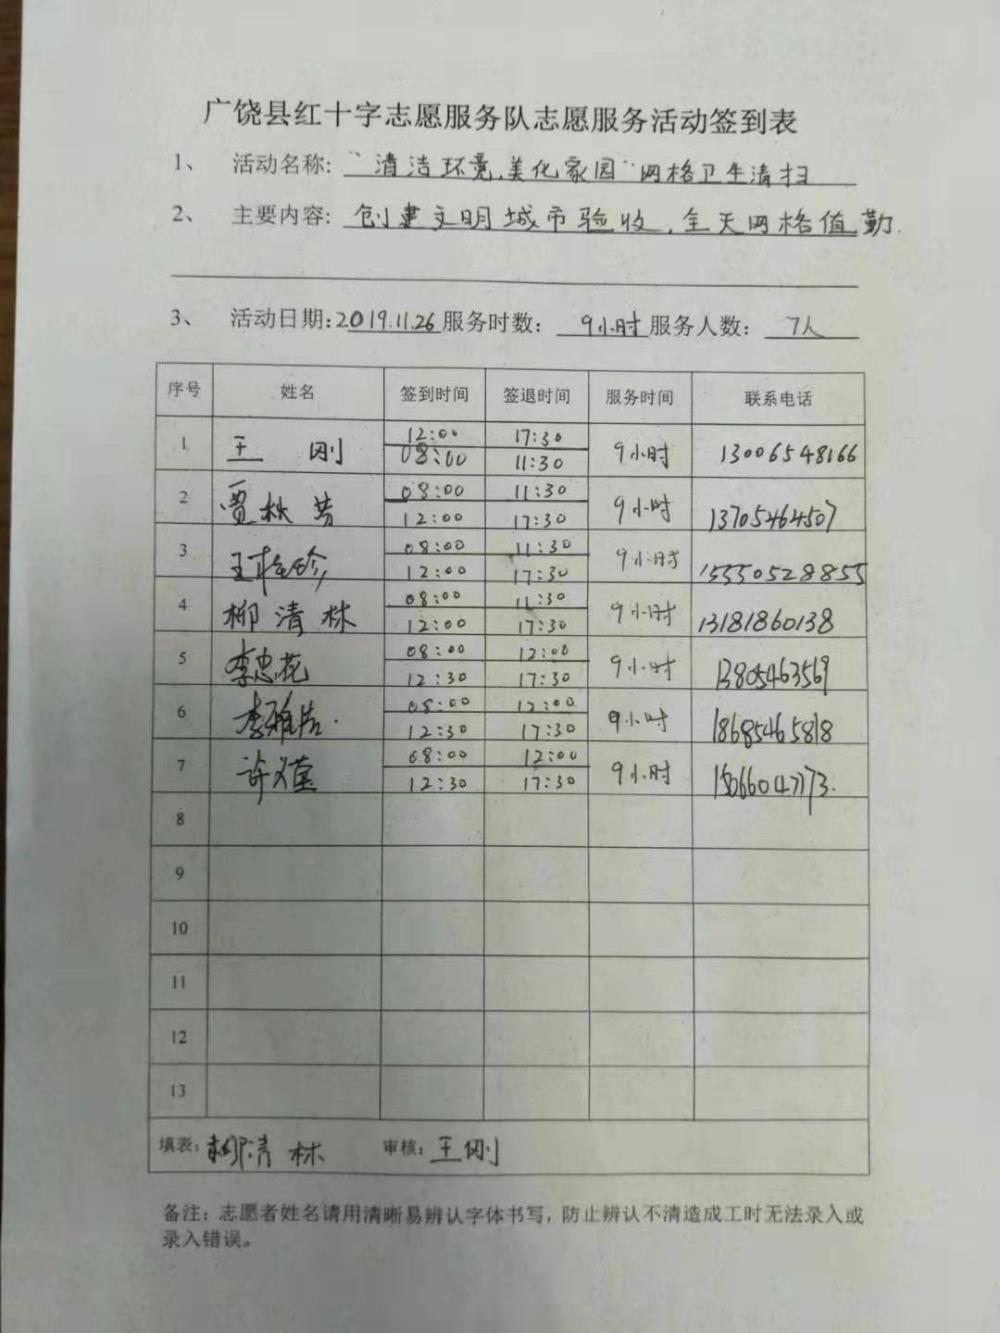 广饶县红十字志愿服务队志愿服务活动签到表
1、 活动名称: “清洁环境,美化家园”网格卫生清扫
2、 主要内容: 创建文明城市验收,全天网格值勤.
3、 活动日期:2019.11.26 服务时数: 9小时 服务人数: 7人
序号 姓名 签到时间 签退时间 服务时间 联系电话
1 王 刚 12:00 17:30 9小时 13006548166
08:00 11:30
2 贾秋芳 08:00 11:30 9小时 13705464507
12:00 17:30
3 08:00 11:30 9小时 15550528855
12:00 17:30
4 柳清林 08:00 11:30 9小时 13181860138
12:00 17:30
5 李忠花 08:00 12:00 9小时 13805463569
12:30 17:30
6 李雅洁. 08:00 12:00 9小时 18685465818
12:30 17:30
7 08:00 12:00 9小时
12:30 17:30
8
9
10
11
12
13
填表: 柳清林 审核: 王刚
备注:志愿者姓名请用清晰易辨认字体书写,防止辨认不清造成工时无法录入或
录入错误。